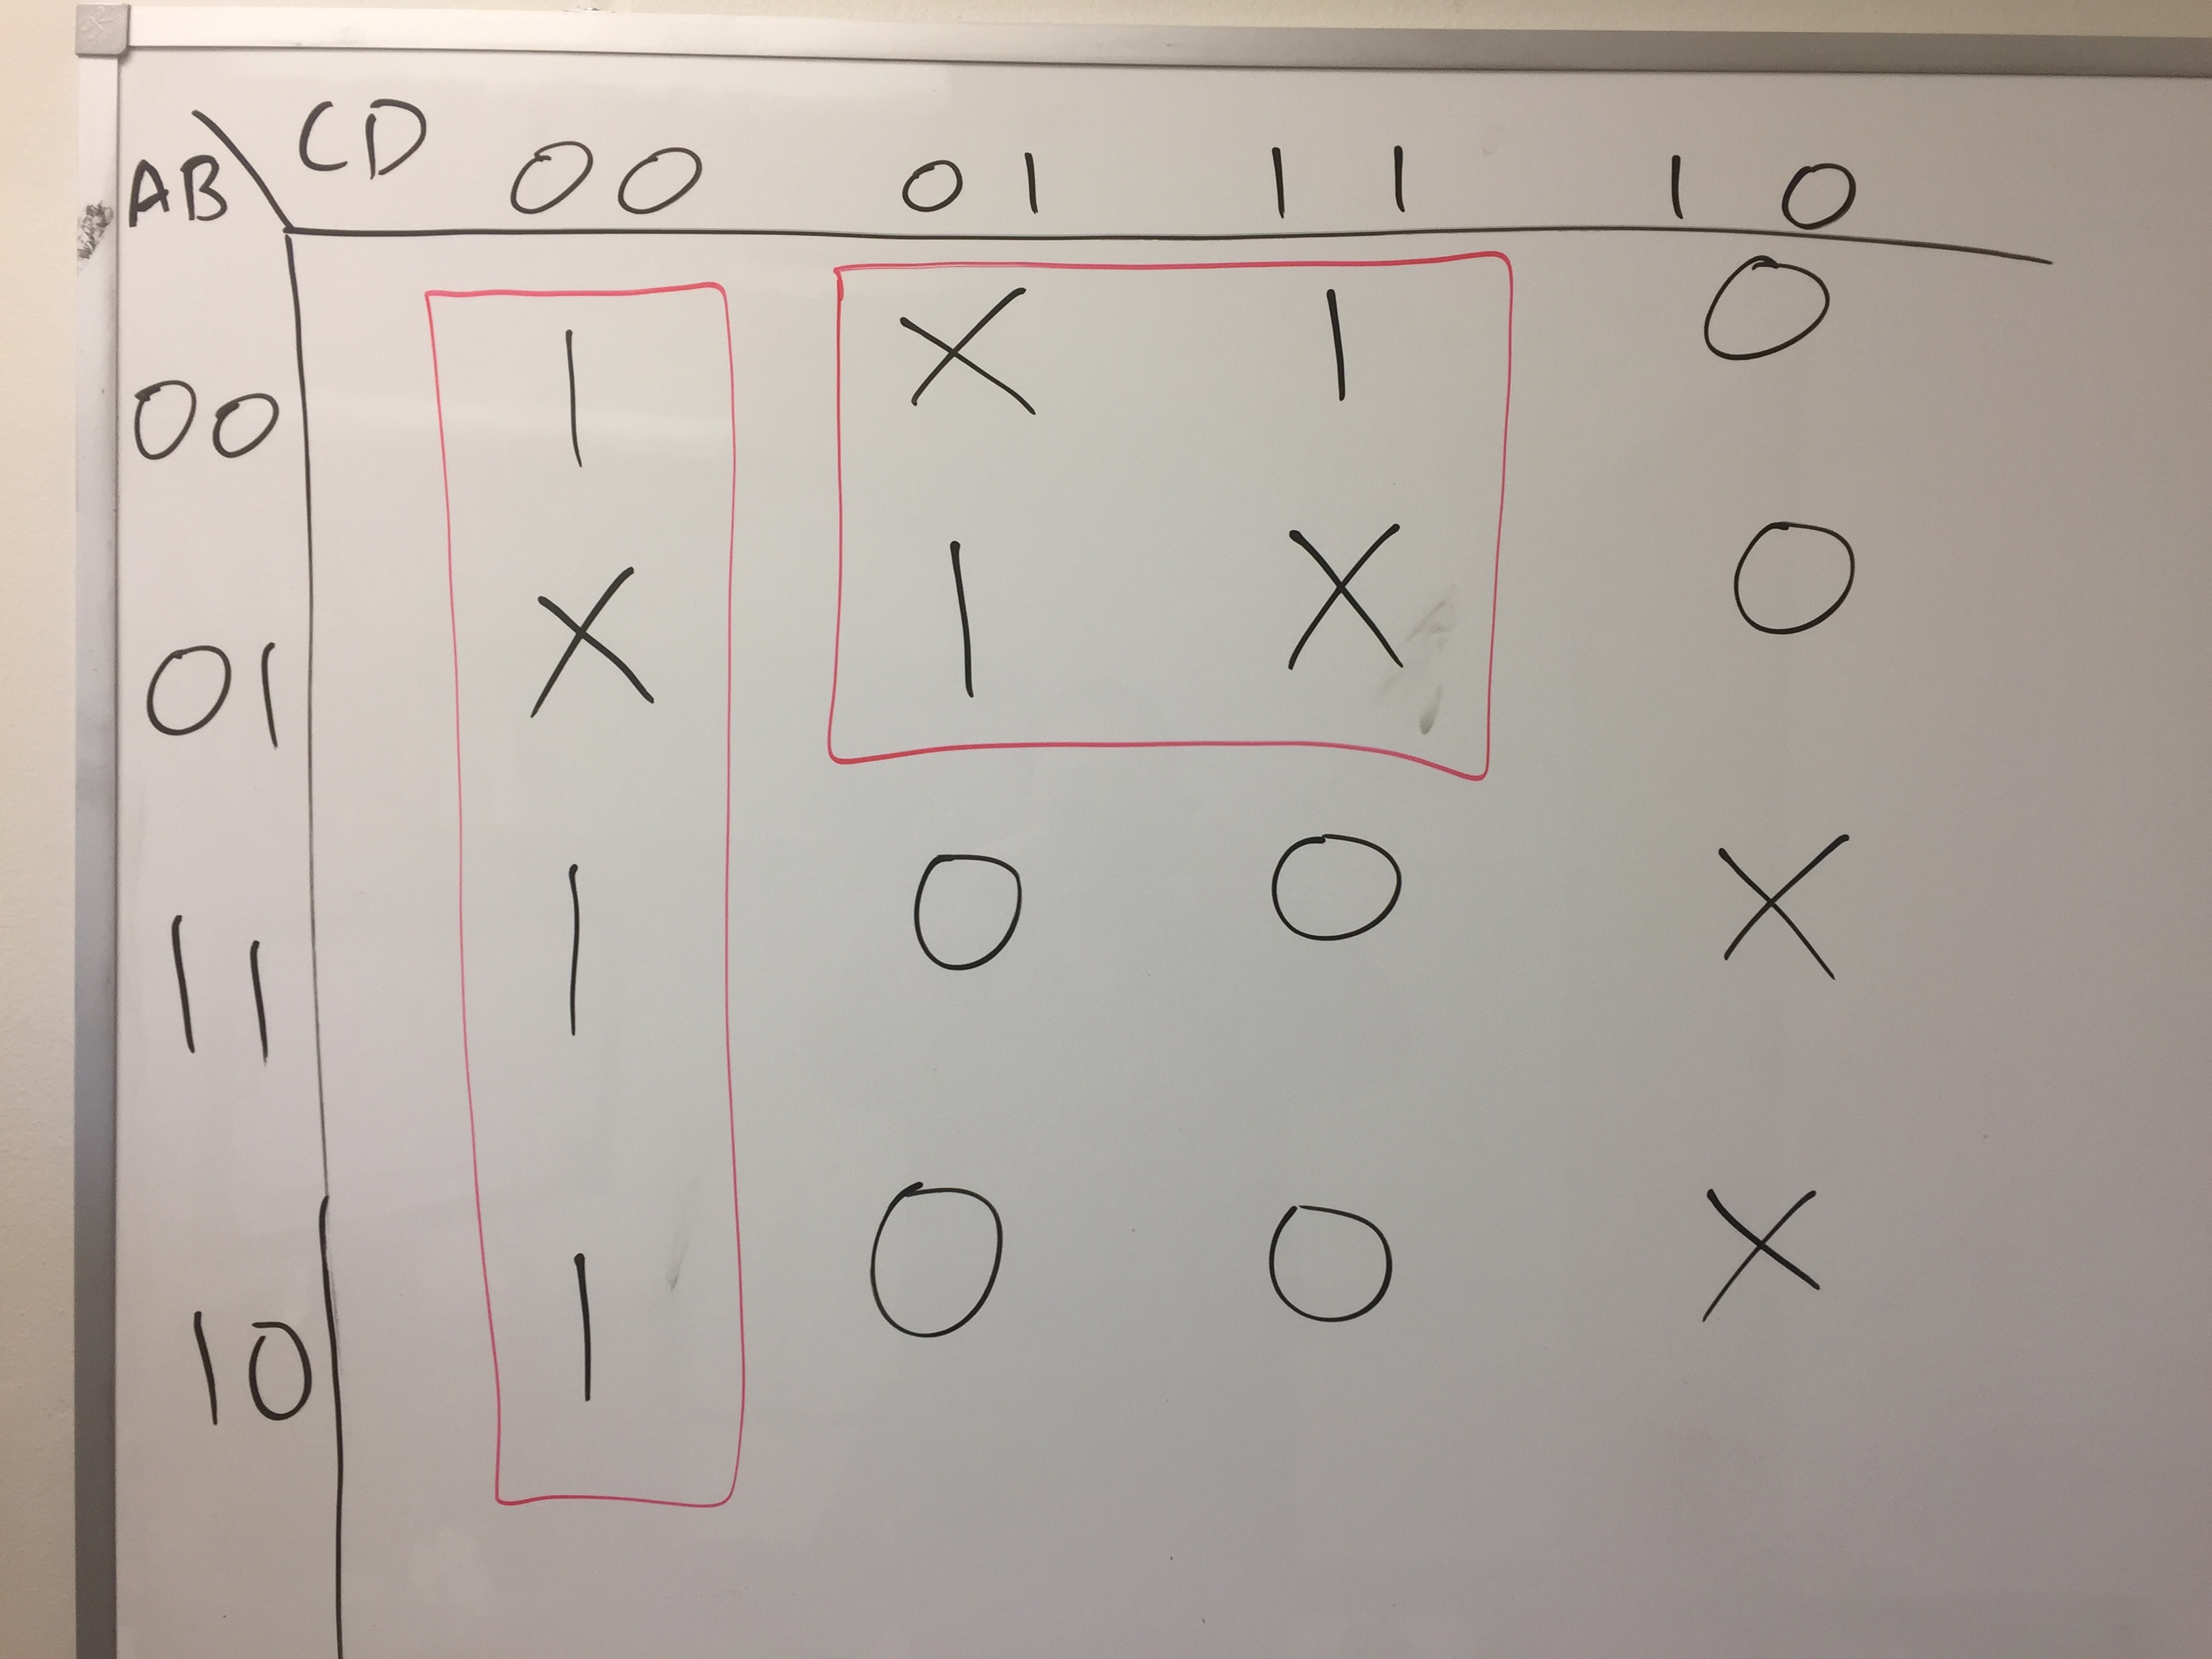 AB \ CD 00 01 11 10
00 1 X 1 0
01 X 1 X 0
11 1 0 0 X
10 1 0 0 X